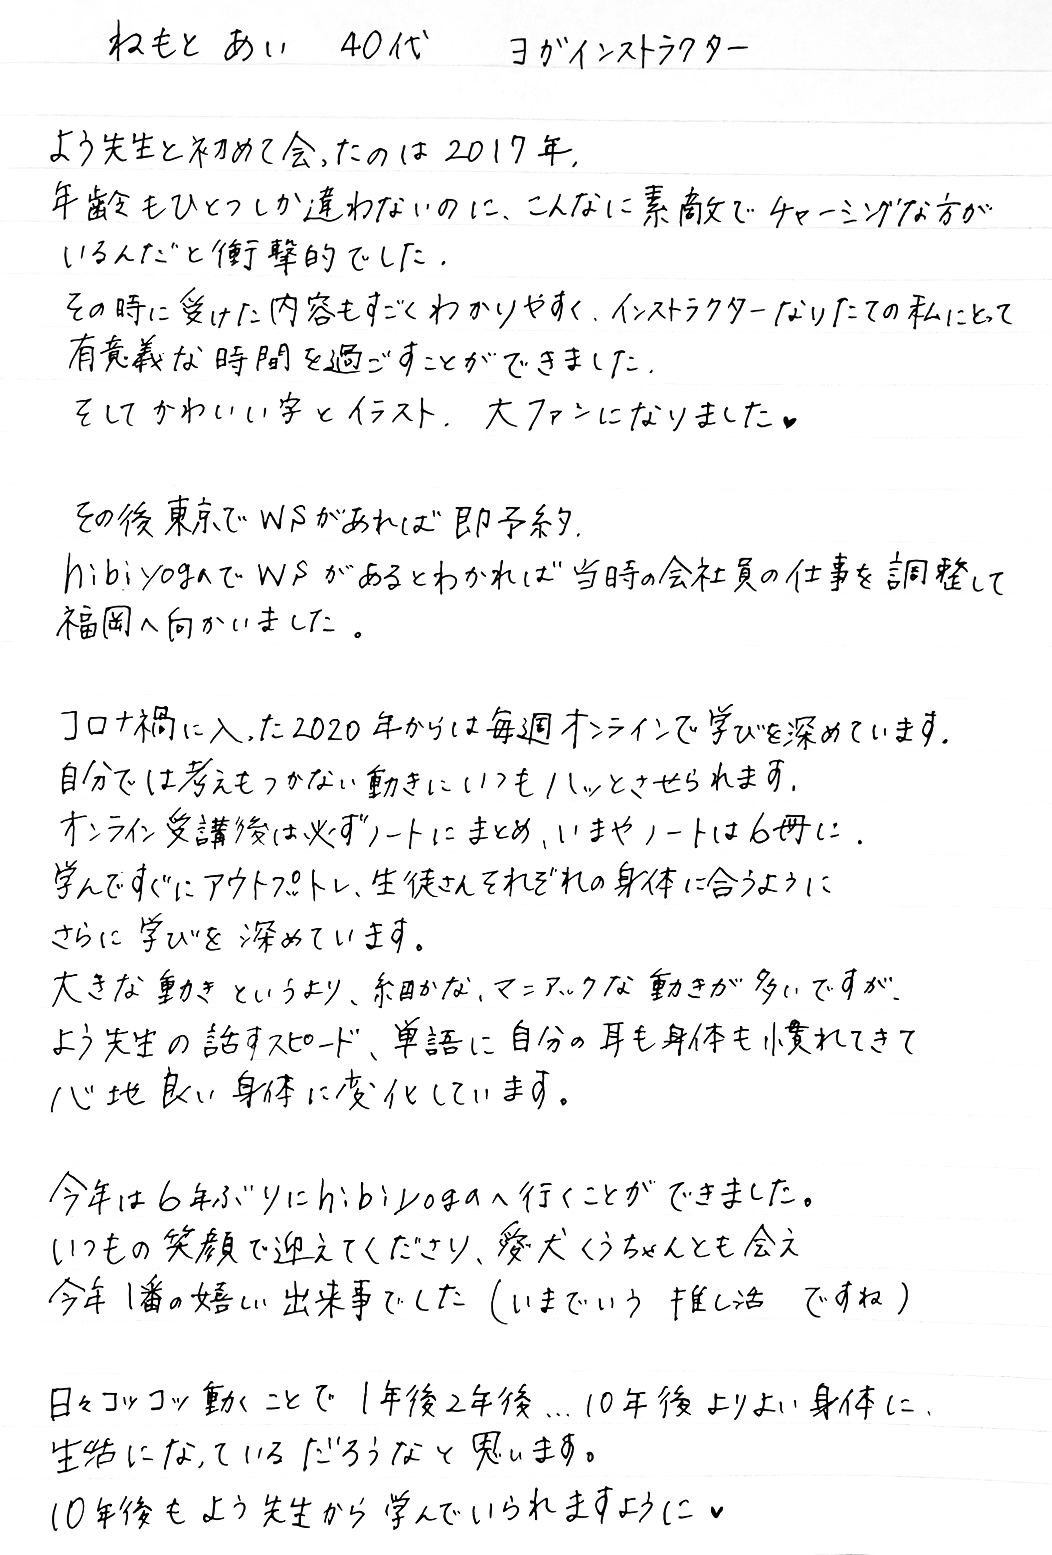 ねもと あい 40代 ヨガインストラクター
よう先生と初めて会ったのは2017年.
年齢もひとつしか違わないのに、こんなに素敵でチャーミングな方が
いるんだと衝撃的でした.
その時に受けた内容もすごくわかりやすく、インストラクターなりたての私にとって
有意義な時間を過ごすことができました.
そしてかわいい字とイラスト. 大ファンになりました♥
その後東京でWSがあれば即予約.
hibiyogaでWSがあるとわかれば当時の会社員の仕事を調整して
福岡へ向かいました。
コロナ禍に入った2020年からは毎週オンラインで学びを深めています.
自分では考えもつかない動きにいつもハッとさせられます.
オンライン受講後は必ずノートにまとめ、いまやノートは6冊に.
学んですぐにアウトプットし、生徒さんそれぞれの身体に合うように
さらに学びを深めています。
大きな動きというより、細かな、マニアックな動きが多いですが、
よう先生の話すスピード、単語に自分の耳も身体も慣れてきて
心地良い身体に変化しています。
今年は6年ぶりにhibiyogaへ行くことができました。
いつもの笑顔で迎えてくださり、愛犬くうちゃんとも会え
今年1番の嬉しい出来事でした(いまでいう 推し活 ですね)
日々コツコツ動くことで1年後2年後…10年後よりよい身体に、
生活になっているだろうなと思います。
10年後もよう先生から学んでいられますように♥